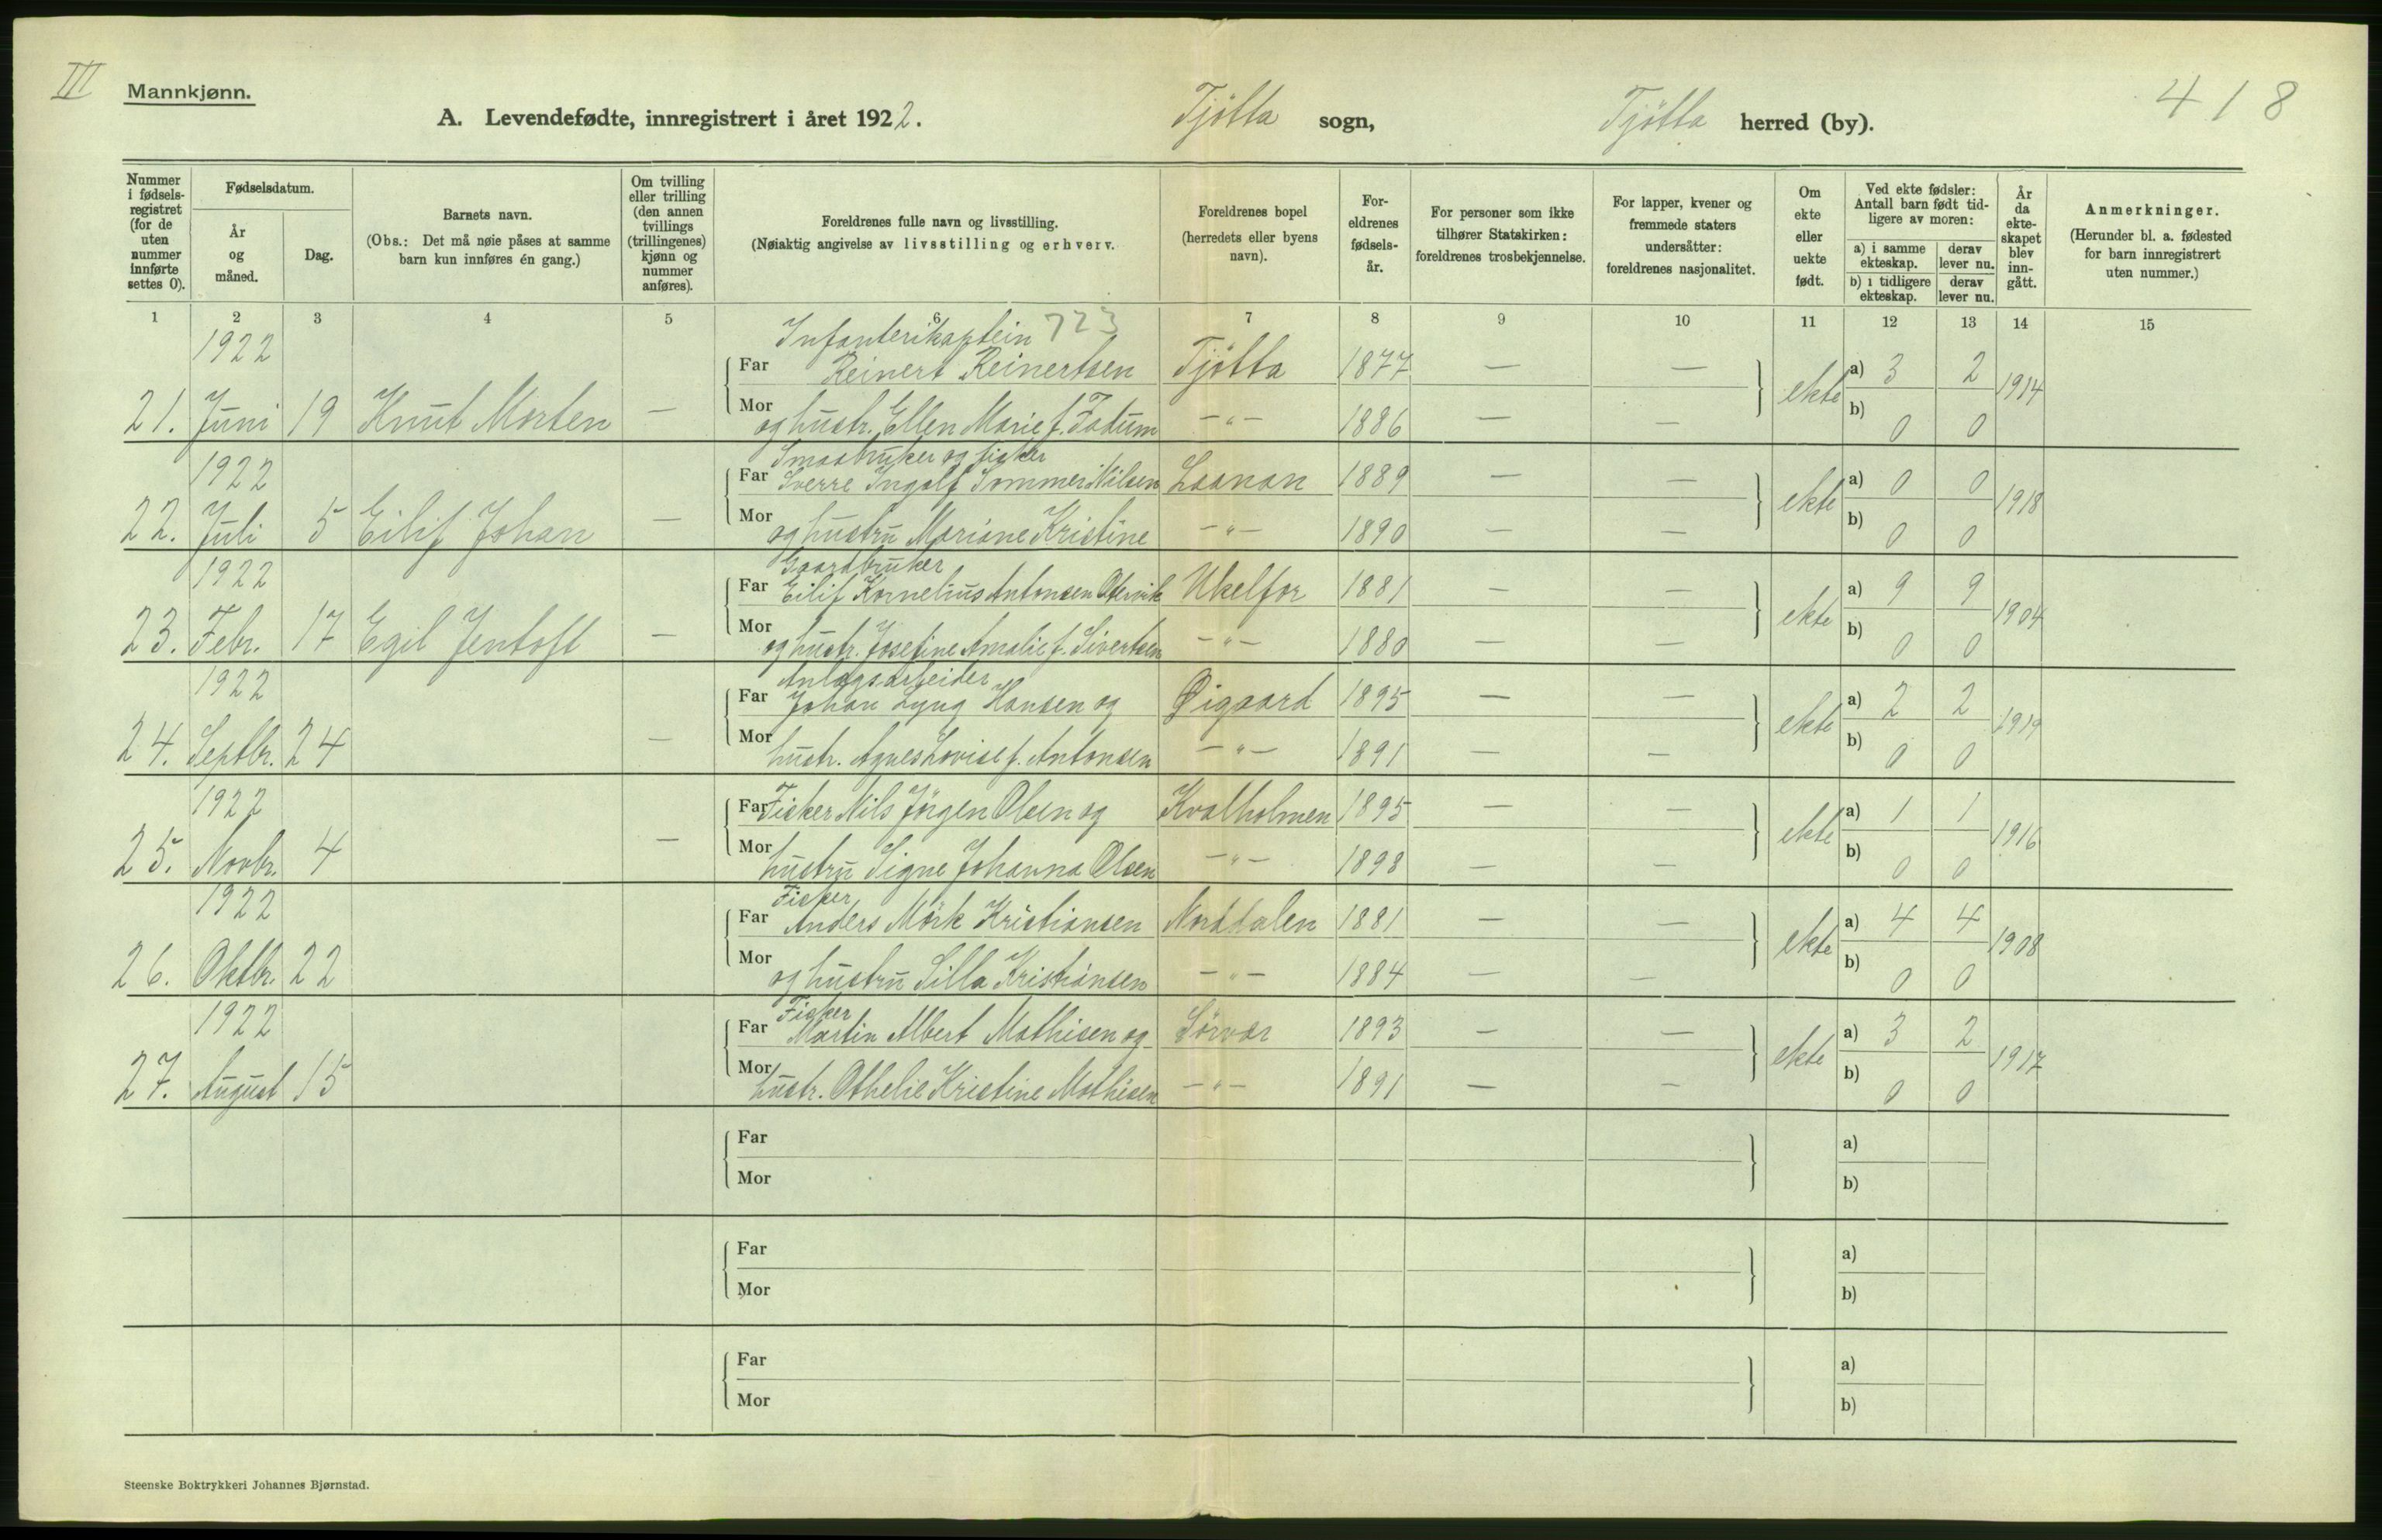 III
Mannkjønn.
A. Levendefødte, innregistrert i året 1922.
Tjötta sogn,
Tjötta herred (by).
418
Nummer i fødsels-registret (for de uten nummer innførte settes 0).
Fødselsdatum.
År og måned.
Dag.
Barnets navn.
(Obs.: Det må nøie påses at samme barn kun innføres én gang.)
Om tvilling eller trilling (den annen tvillings (trillingenes) kjønn og nummer anføres).
Foreldrenes fulle navn og livsstilling.
(Nøiaktig angivelse av livsstilling og erhverv.
Foreldrenes bopel (herredets eller byens navn).
For-eldrenes fødsels-år.
For personer som ikke tilhører Statskirken: foreldrenes trosbekjennelse.
For lapper, kvener og fremmede staters undersåtter: foreldrenes nasjonalitet.
Om ekte eller uekte født.
Ved ekte fødsler: Antall barn født tid-ligere av moren:
a) i samme ekteskap.
derav lever nu.
b) i tidligere ekteskap.
derav lever nu.
År da ekte-skapet blev inn-gått.
Anmerkninger.
(Herunder bl. a. fødested for barn innregistrert uten nummer.)
1 2 3 4 5 6 7 8 9 10 11 12 13 14 15
1922 Infanterikaptein 723
Far Reinert Reinertsen Tjötta 1877 — — ekte a) 3 2 1914
21. Juni 19 Knut Morten — Mor og hustr. Ellen Marie f. Fadum —"— 1886 — — b) 0 0
1922 Smaabruker og fisker
Far Sverre Ingolf Sommer Nilsen Laanan 1889 — — ekte a) 0 0 1918
22. Juli 5 Eilif Johan — Mor og hustru Mariane Kristine —"— 1890 — — b) 0 0
1922 Gaardbruker
Far Eilif Kornelius Antonsen Ukelfor 1881 — — ekte a) 9 9 1904
23. Febr. 17 Egil Jentoft — Mor og hustr. Josefine Amalie f. Sivertsen —"— 1880 — — b) 0 0
1922 Anlægsarbeider
Far Johan Lyng Hansen og Øigaard 1895 — — ekte a) 2 2 1919
24. Septbr. 24 — Mor hustr. Agnes Lovise f. Antonsen —"— 1891 — — b) 0 0
1922 Far Fisker Nils Jörgen Olsen og Kvalholmen 1895 — — ekte a) 1 1 1916
25. Novbr. 4 — Mor hustru Signe Johanna Olsen —"— 1898 — — b) 0 0
1922 Fisker
Far Anders Mörk Kristiansen Norddalen 1881 — — ekte a) 4 4 1908
26. Oktbr. 22 Mor og hustru Silla Kristiansen —"— 1884 — — b) 0 0
1922 Fisker
Far Martin Albert Mathisen og Sörvær 1893 — — ekte a) 3 2 1917
27. August 15 Mor hustr. Othelie Kristine Mathisen —"— 1891 — — b) 0 0
Far a)
Mor b)
Far a)
Mor b)
Far a)
Mor b)
Steenske Boktrykkeri Johannes Bjørnstad.